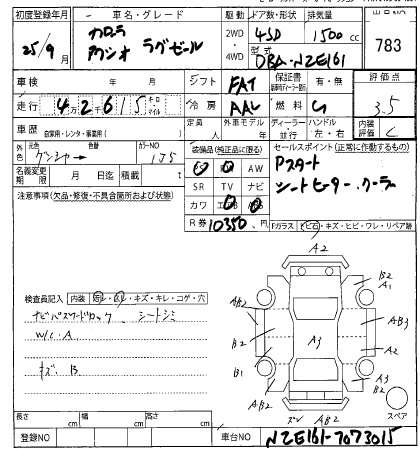 初度登録年月 車名・グレード 駆動 ドア数・形状 排気量 出品NO
25/9月 カローラ 2WD 4SD 1500cc 783
アクシオ ラグゼール 4WD 型式
DBA-NZE161
車検 年 月 シフト FAT 保証書 有・無 評価点
走行 4万2615 キロ マイル 冷房 AAC 燃料 G 3.5
車歴 自家用・レンタ・事業用( ) 定員 人 外車モデル 年 ディーラー 並行 ハンドル 左・右 内装評価 C
外色 元色 色替 カラーNO 1J5 装備品(純正品に限る) セールスポイント(正常に作動するもの)
名義変更期限 月 日迄 積載 t AW Pスタート
SR TV ナビ シートヒーター クーラー
注意事項(欠品・修復・不具合箇所および状態) カワ エアB
R券 10350円 Fガラス 飛石・キズ・ヒビ・ワレ・リペア跡
A2
B2
A1
検査員記入 内装 ・キズ・キレ・コゲ・穴 AB2 AB3
ナビパスワードロック シートシミ B2 A3
W/C A A2
キズ B B1 A3
AB2 B2
A B2
スペア
長さ cm 幅 cm 高さ cm
登録NO 車台NO NZE161-7073015